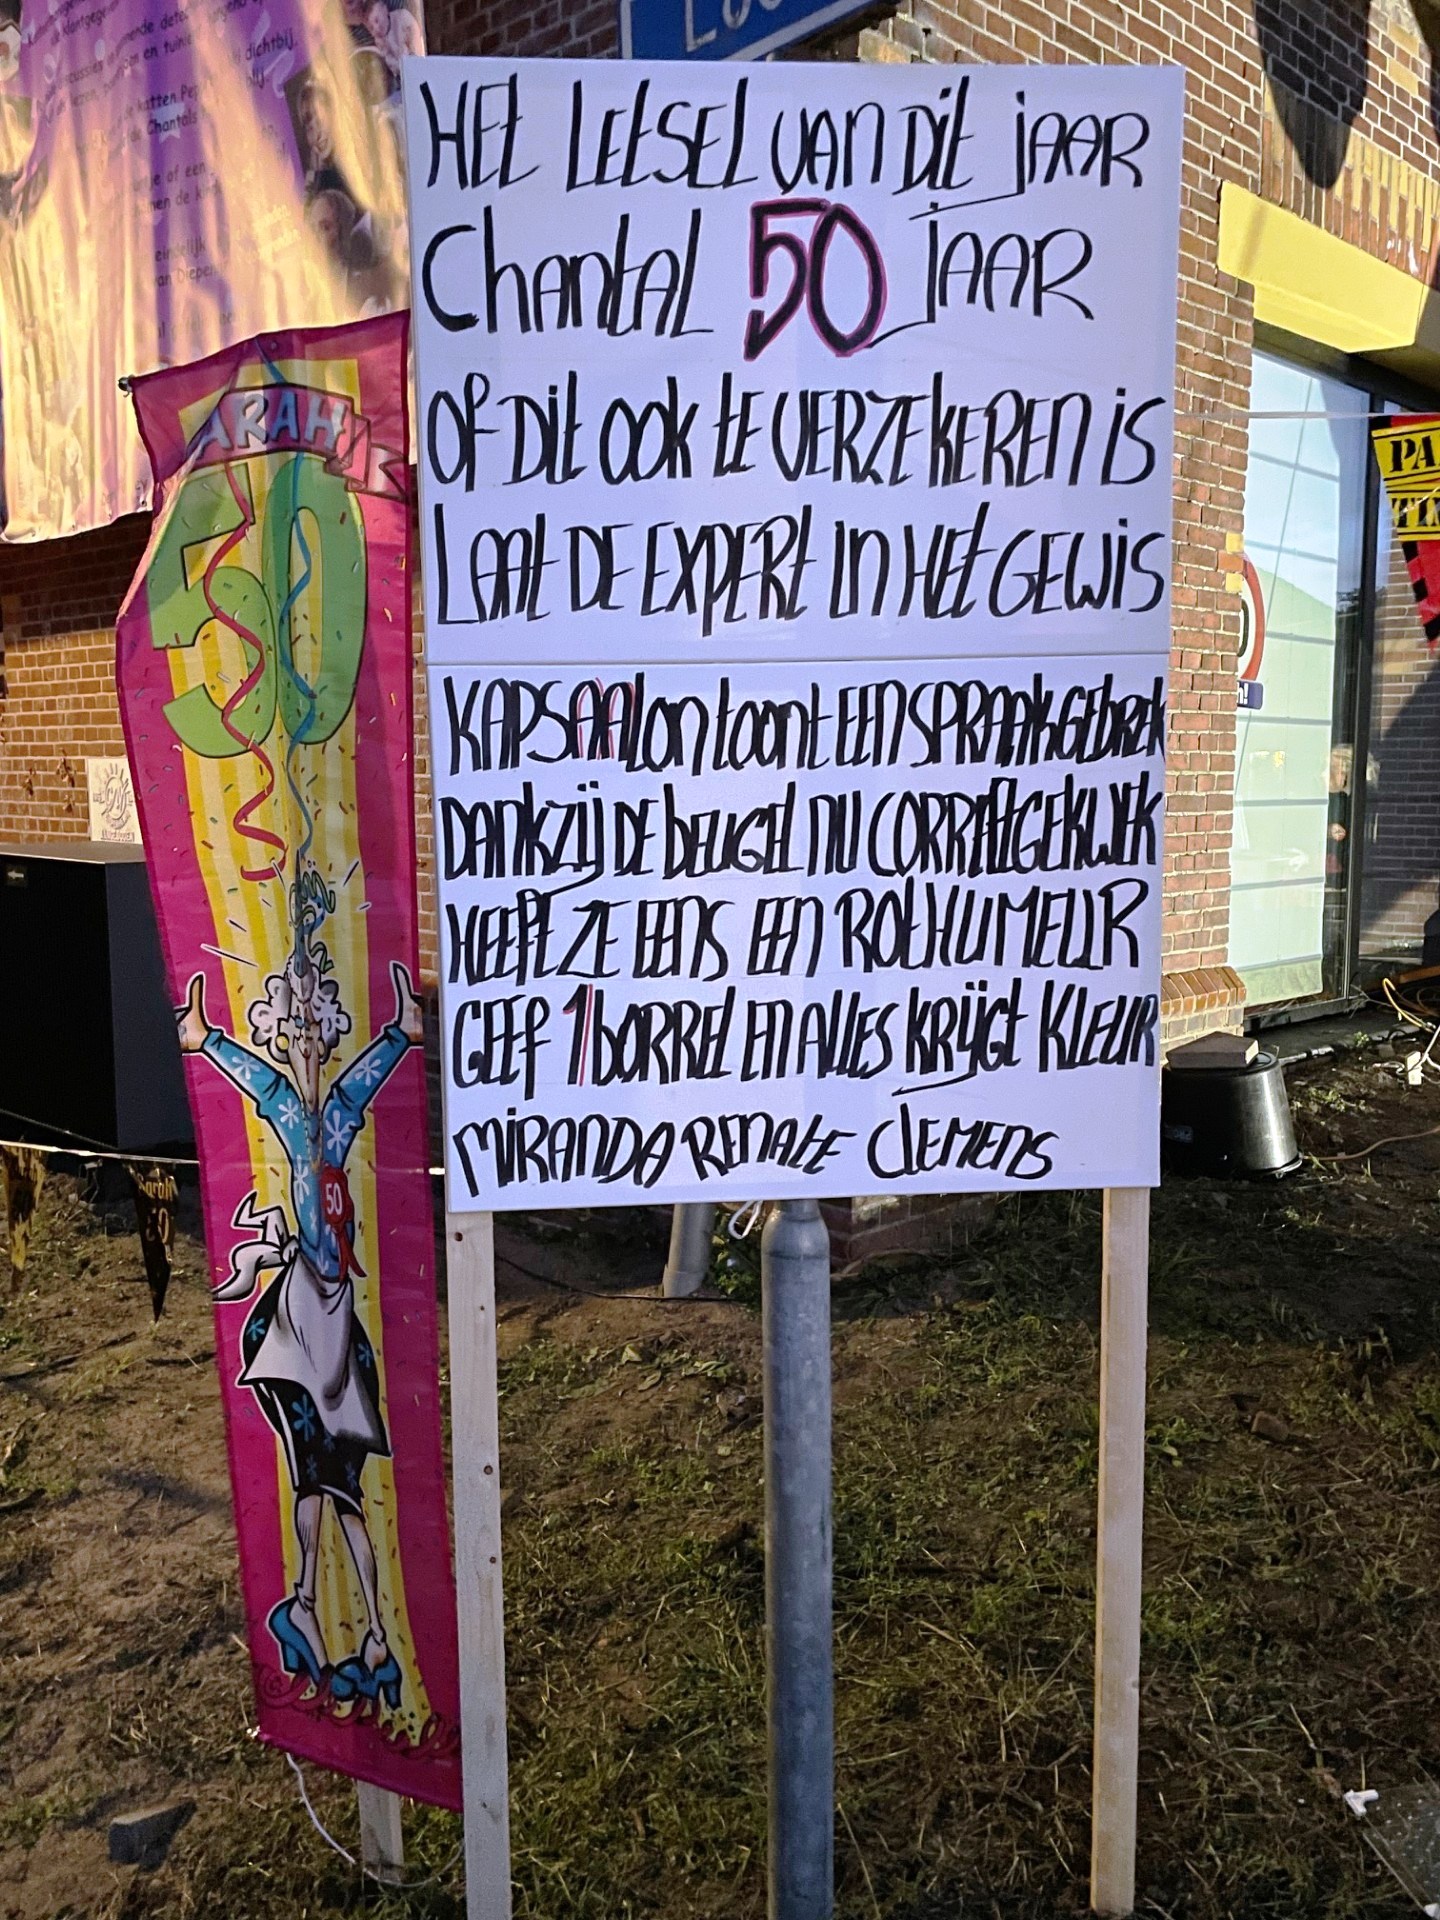 HET LETSEL VAN DIT JAAR
Chantal 50 JAAR
OF DIT OOK TE VERZEKEREN IS
LAAT DE EXPERT IN HET GEWIS
KAPSAALON TOONT EEN SPRAAKGEBREK
DANKZIJ DE BEUGEL NU CORREET GEKWEK
HEEFT ZE EENS EEN ROTHUMEUR
GEEF 1 BORREL EN ALLES KRIJGT KLEUR
MIRANDA RENATE CLEMENS
ARAH
50
50
Sarah
50
PA
dichtbij.
katten
Chantals
of een
eindelijk